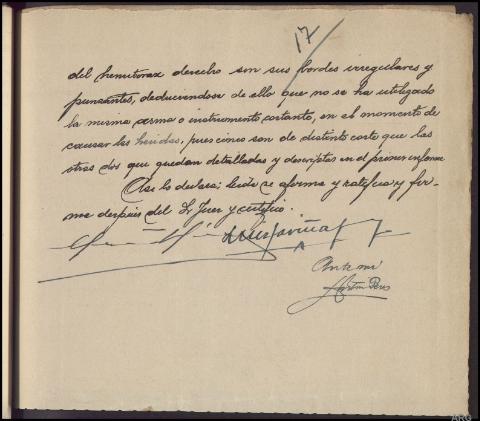 17
del hemitorax derecho son sus bordes irregulares y
punzantes, deduciendose de ello que no se ha utilizado
la misma arma o instrumento cortante, en el momento de
causar las heridas, pues cinco son de distinto corte que las
otras dos que quedan detalladas y descriptas en el primer informe
Asi lo declara; leida se afirma y ratifica y fir-
ma despues del Sr Juez y certifico.
Ante mi
ARG